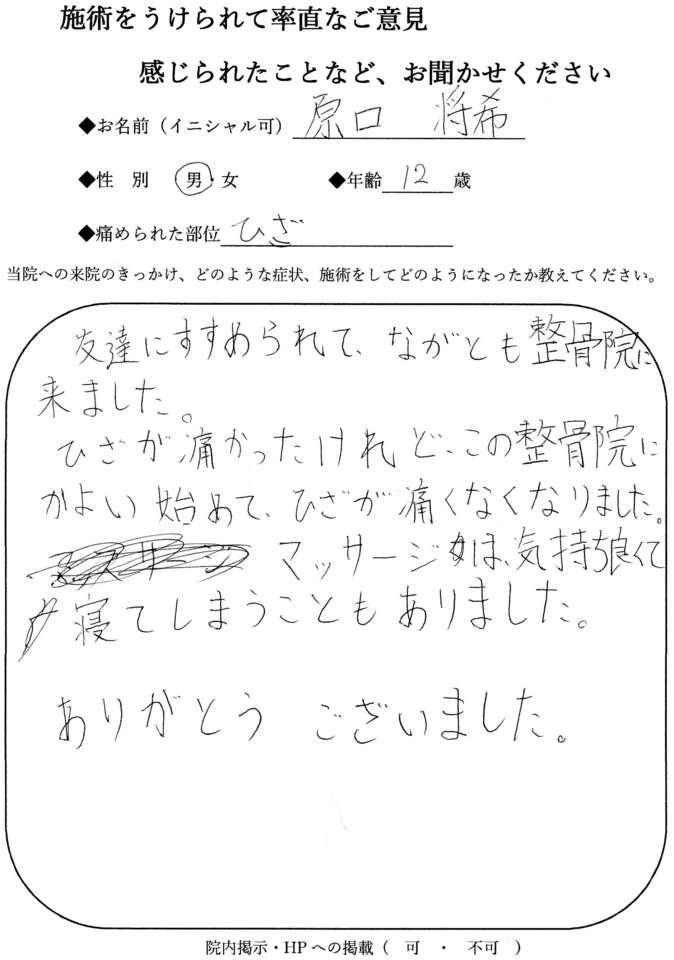 施術をうけられて率直なご意見
感じられたことなど、お聞かせください
◆お名前（イニシャル可） 原口 将希
◆性 別 男・女 ◆年齢 12 歳
◆痛められた部位 ひざ
当院への来院のきっかけ、どのような症状、施術をしてどのようになったか教えてください。
友達にすすめられて、ながとも整骨院に
来ました。
ひざが痛かったけれど、この整骨院に
かよい始めて、ひざが痛くなくなりました。
マッサージは、気持ち良くて
寝てしまうこともありました。
ありがとう ございました。
院内掲示・HPへの掲載（ 可 ・ 不可 ）